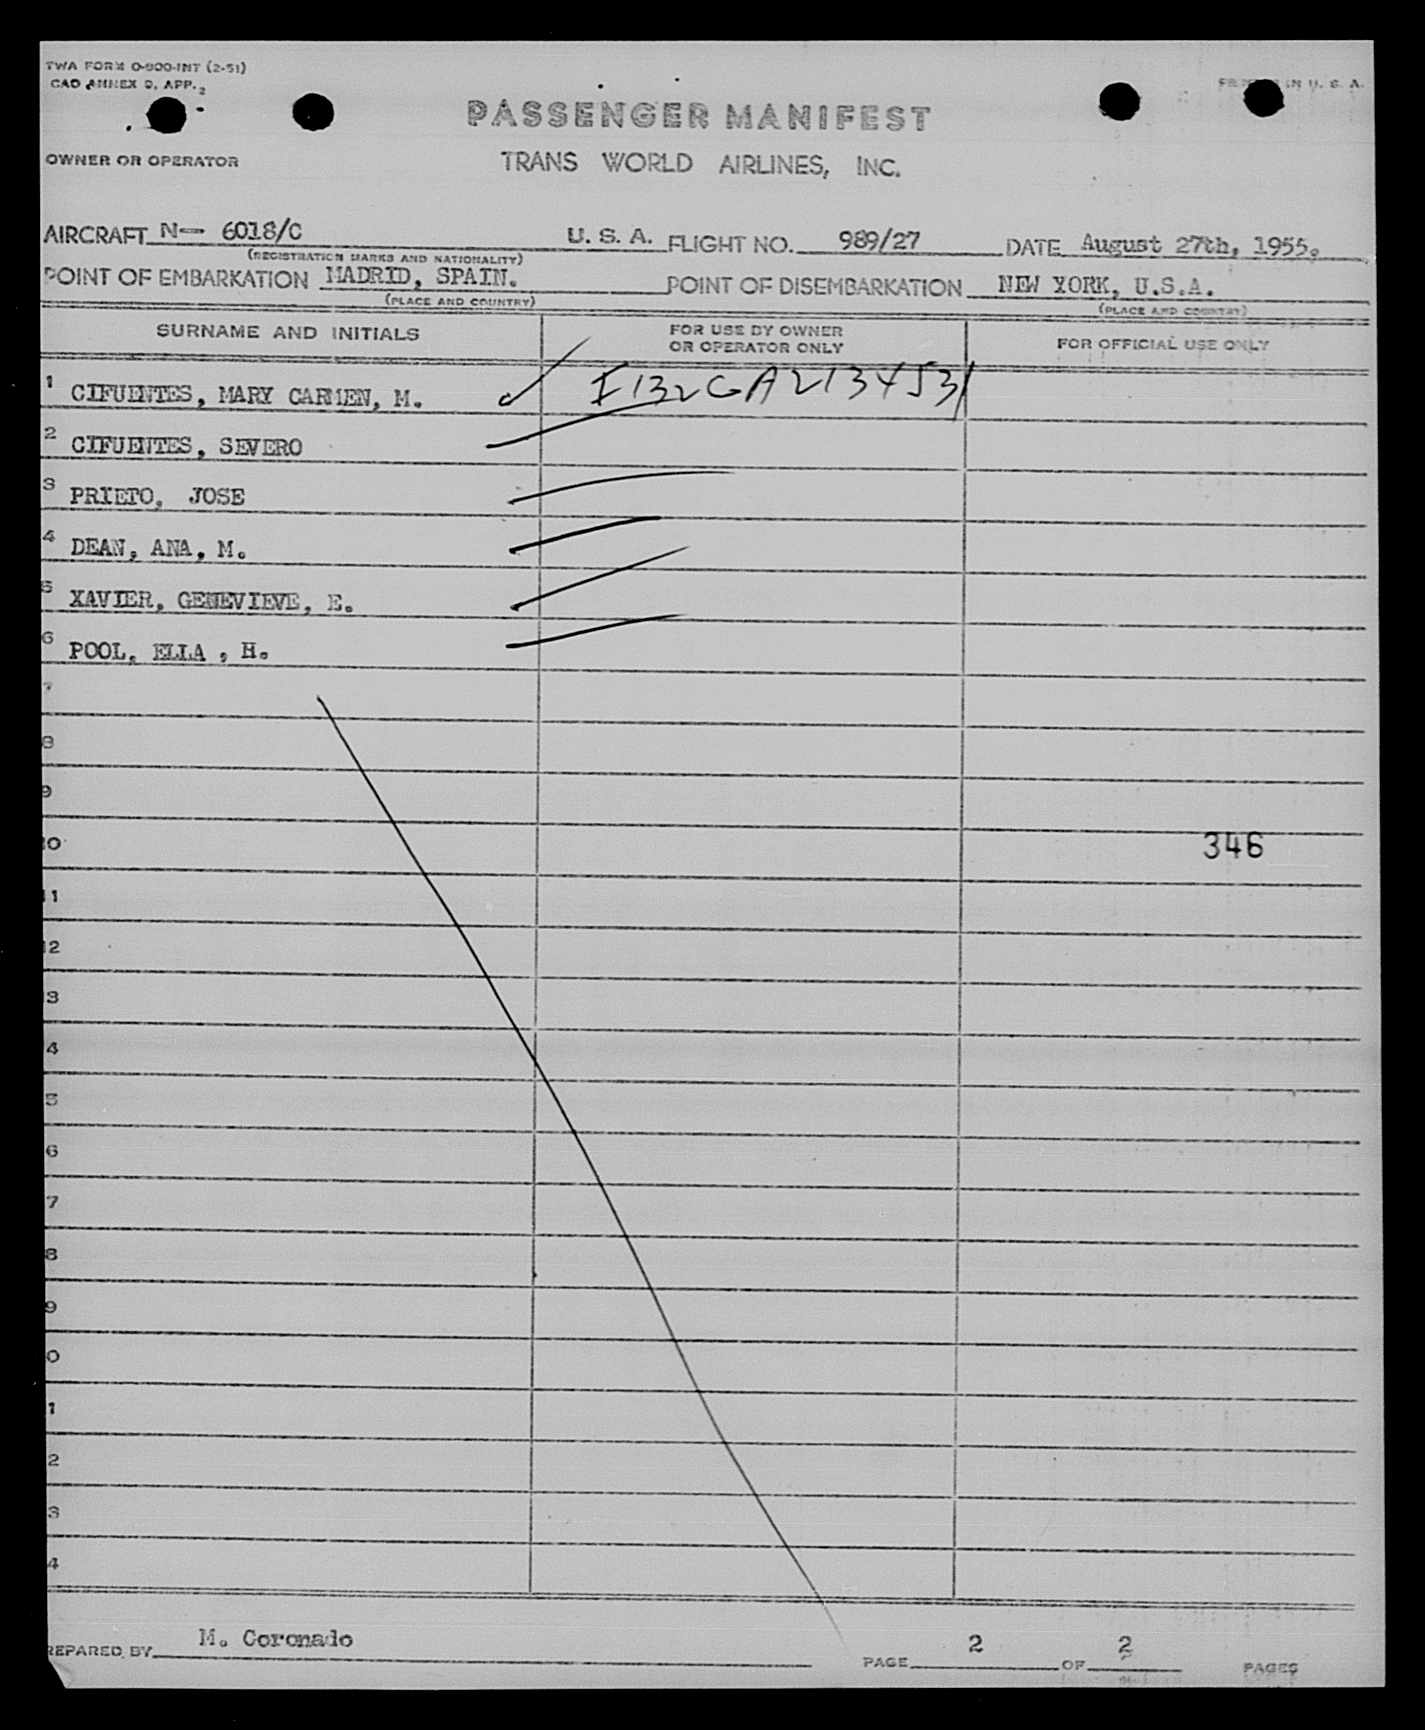 TWA FORM O-800-INT (2-51)
CAO ANNEX 9, APP. 2
PRINTED IN U. S. A.
PASSENGER MANIFEST
OWNER OR OPERATOR TRANS WORLD AIRLINES, INC.
AIRCRAFT N- 6018/C U. S. A. FLIGHT NO. 989/27 DATE August 27th, 1955.
(REGISTRATION MARKS AND NATIONALITY)
POINT OF EMBARKATION MADRID, SPAIN. POINT OF DISEMBARKATION NEW YORK, U.S.A.
(PLACE AND COUNTRY) (PLACE AND COUNTRY)
SURNAME AND INITIALS FOR USE BY OWNER OR OPERATOR ONLY FOR OFFICIAL USE ONLY
1 CIFUENTES, MARY CARMEN, M.
2 CIFUENTES, SEVERO
3 PRIETO, JOSE
4 DEAN, ANA, M.
5 XAVIER, GENEVIEVE, E.
6 POOL, ELLA , H.
7
8
9
10 346
11
12
3
4
5
6
7
8
9
0
1
2
3
4
REPARED BY M. Coronado PAGE 2 OF 2 PAGES